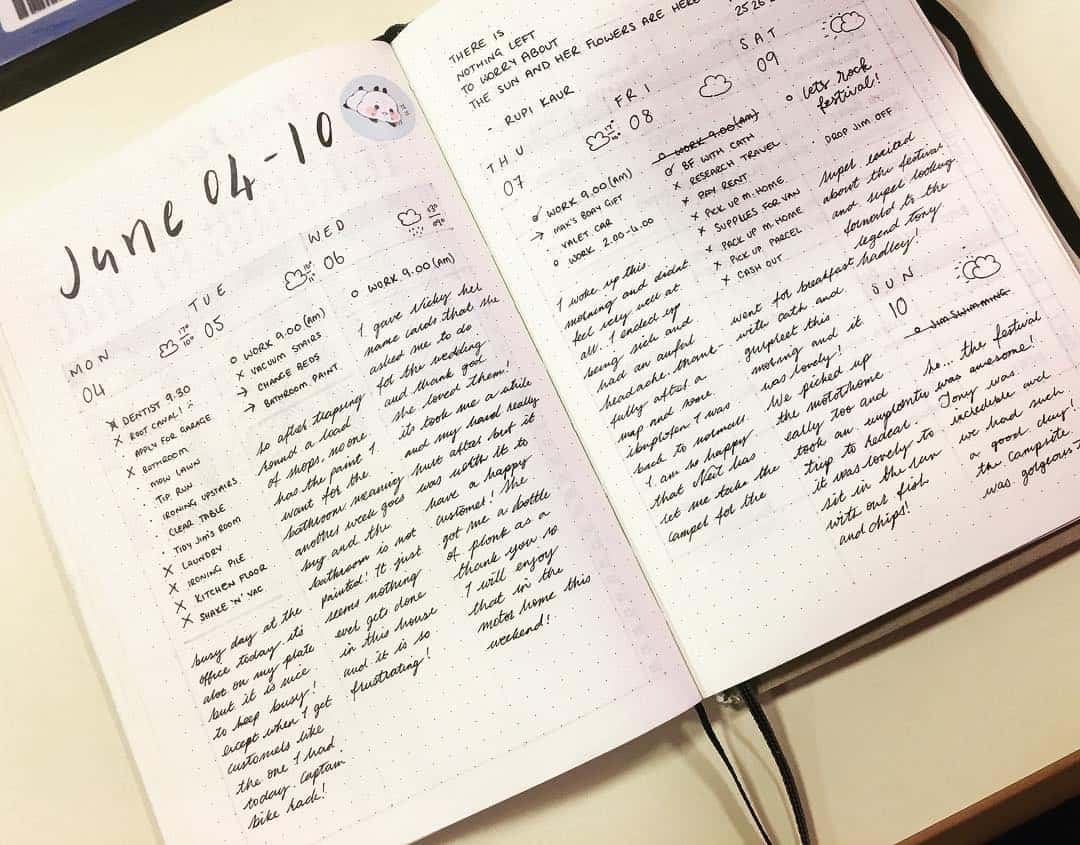 June 04-10
MON
04
DENTIST 9.30
X ROOT CANAL!
X APPLY FOR GARAGE
X BATHROOM
· MOW LAWN
· TIP RUN
· IRONING UPSTAIRS
· CLEAR TABLE
· TIDY JIM'S ROOM
X LAUNDRY
X IRONING PILE
X KITCHEN FLOOR
X SHAKE 'N' VAC
busy day at the
office today its
alot on my plate
but it is nice
to keep busy!
except when I get
customers like
the one I had
today. Captain
bike rack!
TUE
05
17°
10°
o WORK 9.00 (AM)
X VACUUM STAIRS
→ CHANGE BEDS
→ BATHROOM PAINT
so after traipsing
round a load
of shops, no one
has the paint I
want for the
bathroom meaning
another week goes
buy and the
bathroom is not
painted! It just
seems nothing
ever gets done
in this house
and it is so
frustrating!
WED
06
o WORK 9.00 (AM)
I gave Vicky her
name cards that she
asked me to do
for the wedding
and thank god
she loved them!
its took me a while
and my hand really
hurt after but it
was worth it to
have a happy
customer! She
got me a bottle
of plonk as a
thank you so
I will enjoy
that in the
motor home this
weekend!
THERE IS
NOTHING LEFT
TO WORRY ABOUT
THE SUN AND HER FLOWERS ARE HERE
- RUPI KAUR
25 26
THU
07
WORK 9.00 (AM)
→ MAK'S BDAY GIFT
· VALET CAR
o WORK 2.00-4.00
I woke up this
morning and didnt
feel very well at
all. I ended up
being sick and
had an awful
headache. thank-
fully after a
nap and some
ibuprofen I was
back to normal.
I am so happy
that Nat has
let me take the
camper for the
FRI
08
17°
10°
o WORK 9.00 (AM)
BF WITH CATH
X RESEARCH TRAVEL
X PAY RENT
X PICK UP M. HOME
X SUPPLIES FOR VAN
X PACK UP M. HOME
X PICK UP PARCEL
X CASH OUT
went for breakfast
with cath and
gurpreet this
morning and it
was lovely!
We picked up
the motorhome
early too and
took an
trip to redcar.
it was lovely to
sit in the sun
with our fish
and chips!
SAT
09
o Lets rock
festival!
· DROP JIM OFF
super excited
about the festival
and super looking
forward to the
legend tony
hadley!
SUN
10
o JIM SWIMMING
the festival
was awesome!
Tony was
incredible and
we had such
a good day!
the campsite
was gorgeous